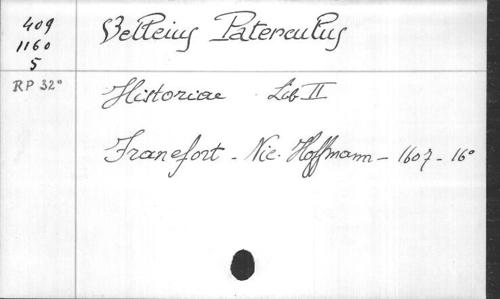 409
1160
5
RP 32°
Velleius Paterculus
Historiae Lib II
Francfort - Nic. Hoffmann - 1607 - 16°